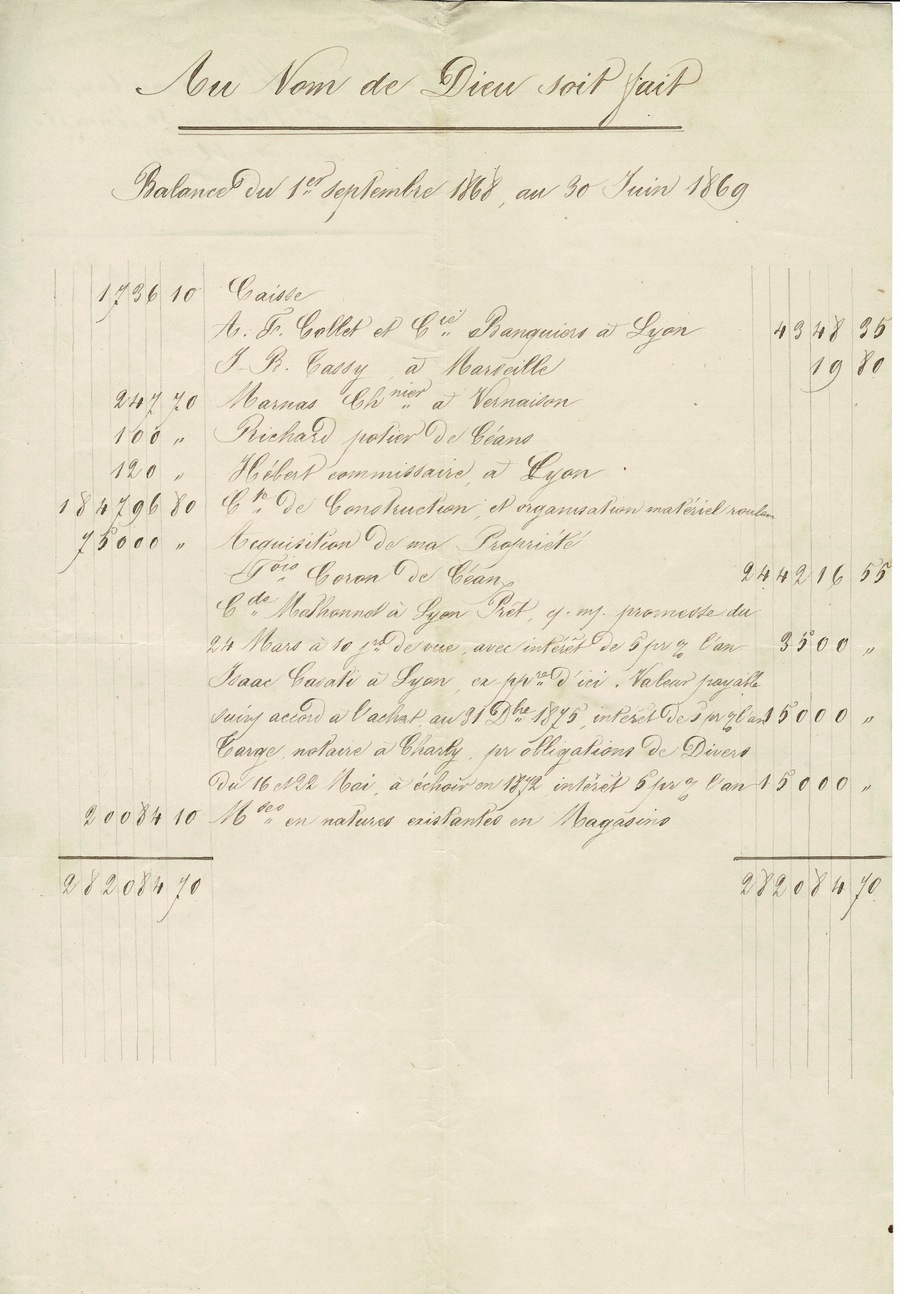 Au Nom de Dieu soit fait
Balance du 1er septembre 1868, au 30 Juin 1869
1736 10 Caisse
A. F. Collet et Cie Banquiers à Lyon 4348 35
J. R. Cassy, à Marseille 19 80
247 70 Marnas Chnier à Vernaison
100 " Richard potier de Céans
120 " Hébert commissaire, à Lyon
184796 80 Cte de Construction, et organisation matériel roulan
75000 " Acquisition de ma Propriété
Fois Coron de Céans 244216 55
Cde Mathonnet à Lyon Prêt, p. m/. promesse du
24 Mars à 10 jrs de vue, avec intérêt de 5 pr % l'an 3500 "
Isaac Casati à Lyon, ex-pre d'ici. Valeur payable
suivt accord à l'achat, au 31 Dbre 1875, intérêt de 5 pr % l'an 15000 "
Targe, notaire à Charly, pr obligations de Divers
du 16 et 22 Mai, à échoir en 1872 intérêt 5 pr % l'an 15000 "
20084 10 Mdes en natures existantes en Magasins
282084 70 282084 70